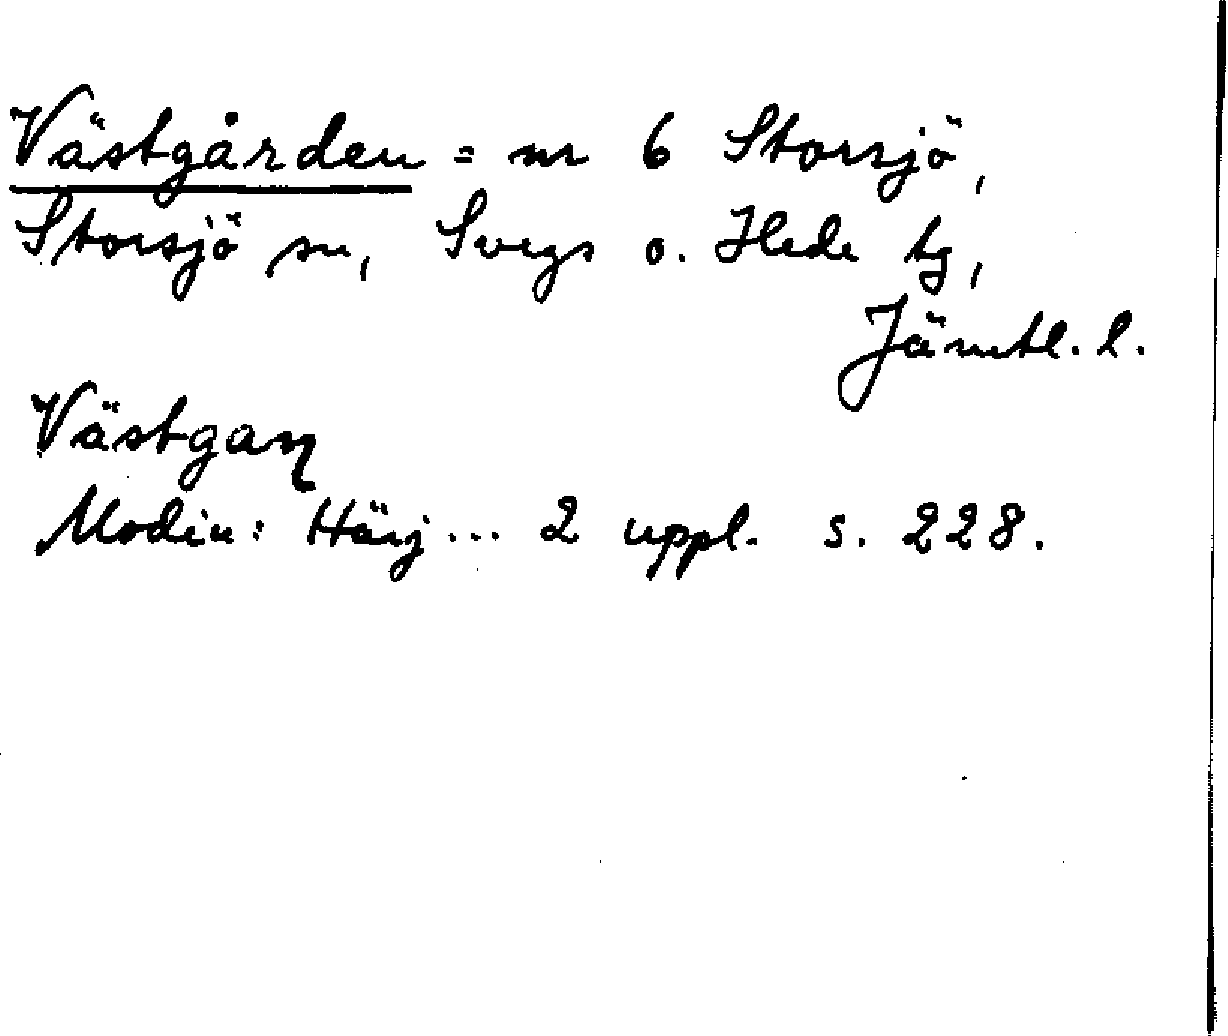 Västgården = nr 6 Storsjö,
Storsjö sn, Svegs o. Hede tg,
Jämtl. l.
Västgaꞃ
Modin: Härj... 2 uppl. s. 228.